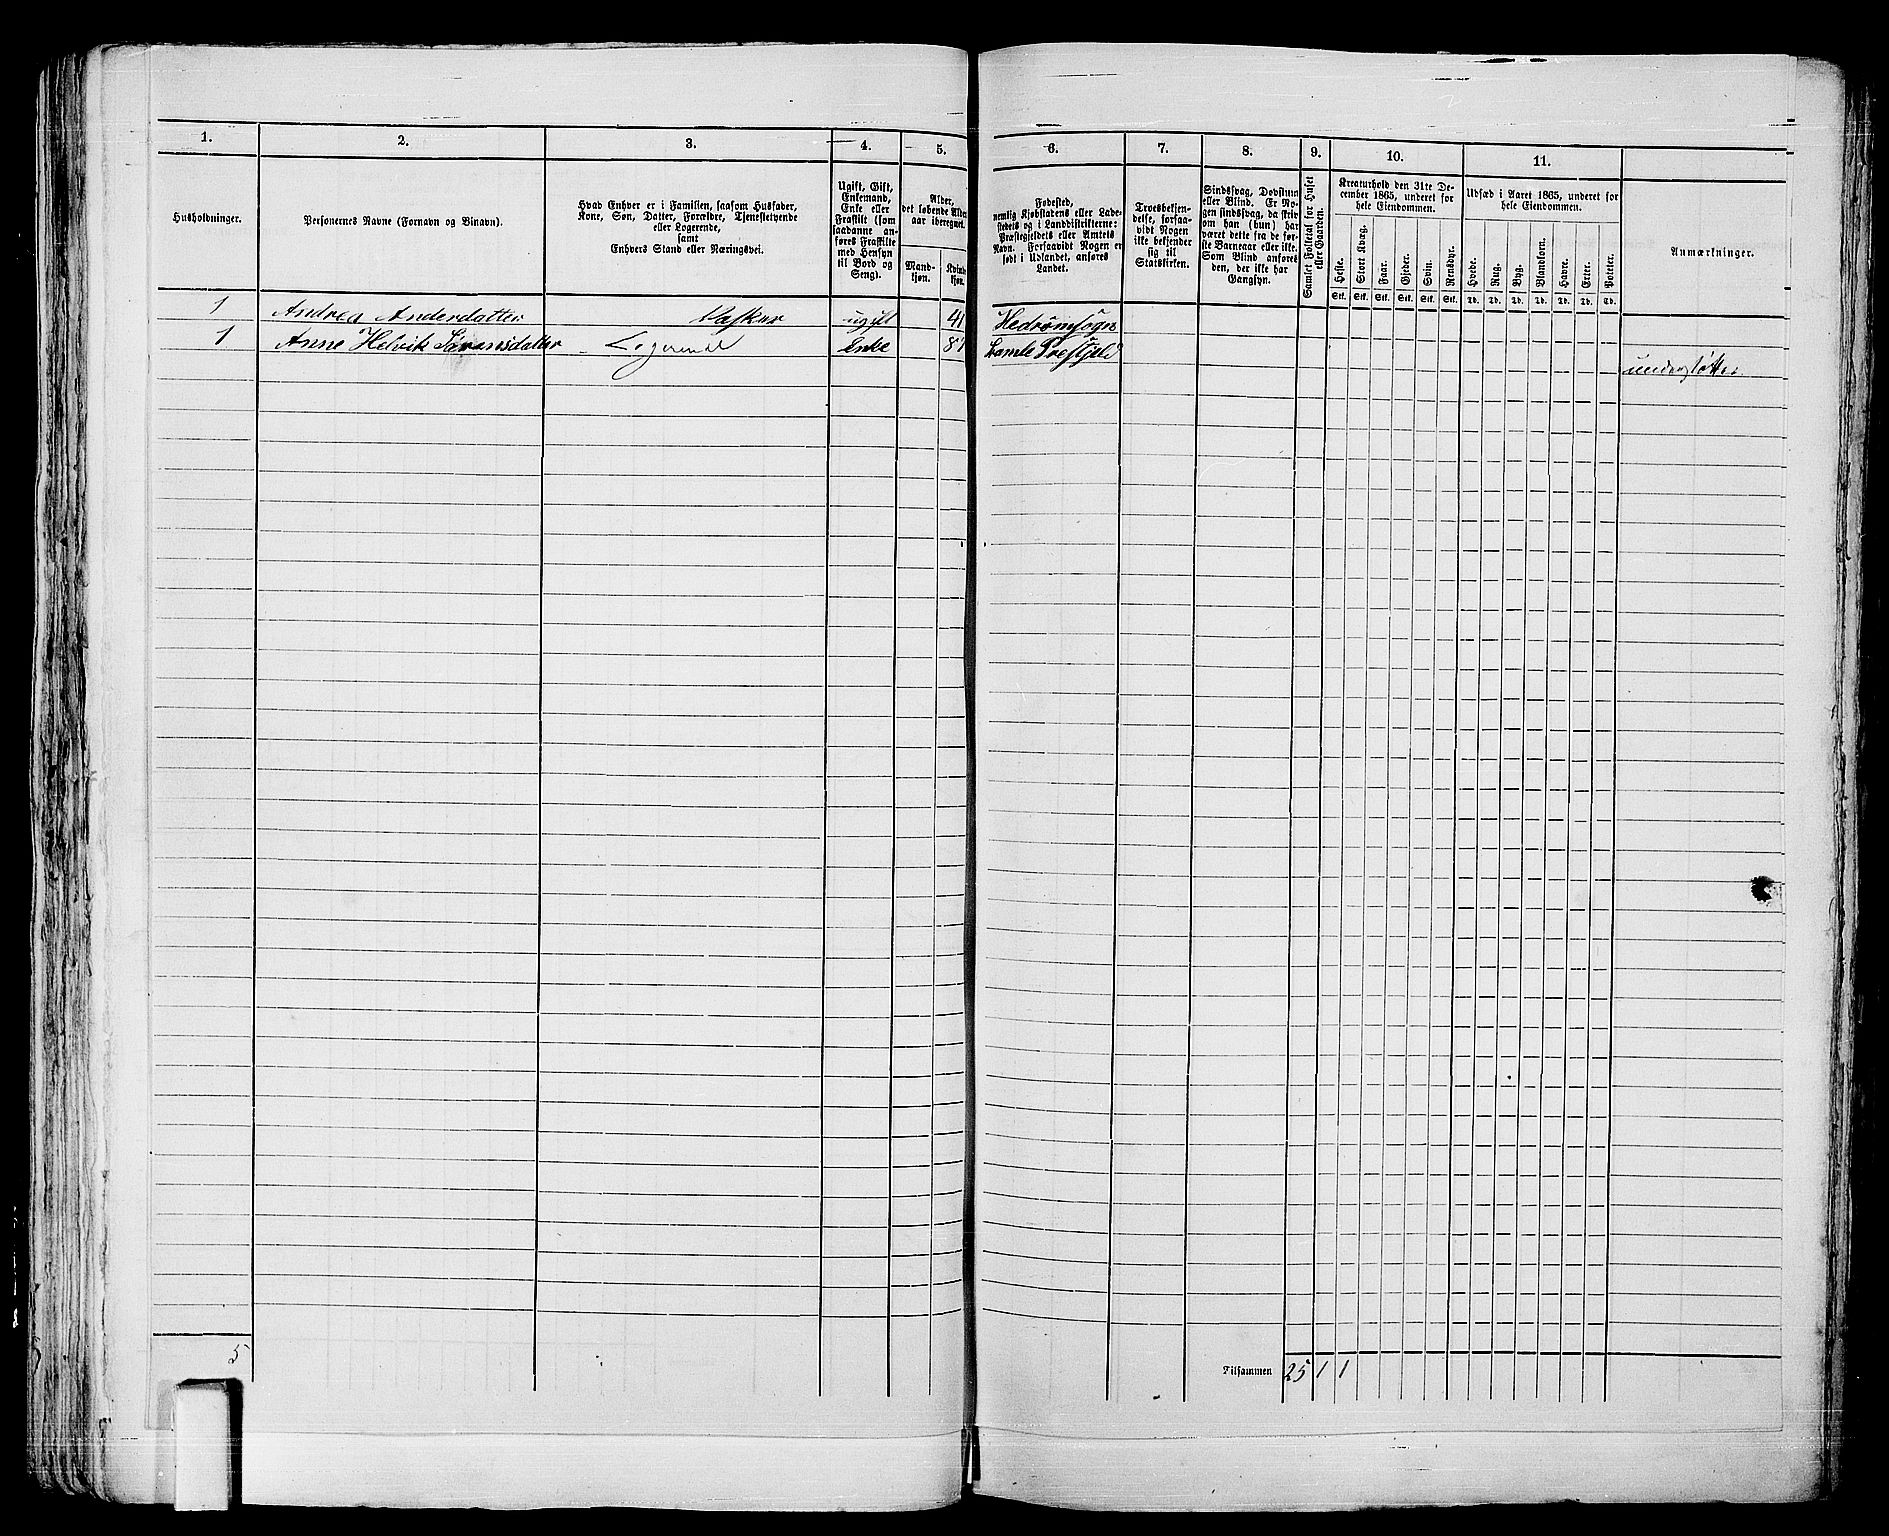 1.
2.
3.
4.
5.
6.
7.
8.
9.
10.
11.
Husholdninger.
Personernes Navne (Fornavn og Binavn).
Hvad Enhver er i Familien, saasom Husfader,
Kone, Søn, Datter, Forældre, Tjenestetyende
eller Logerende,
samt
Enhvers Stand eller Næringsvei.
Ugift, Gift,
Enkemand,
Enke eller
Fraskilt (som
saadanne an-
føres Fraskilte
med Hensyn
til Bord og
Seng).
Alder,
det løbende Alders-
aar iberegnet.
Mand-
kjøn.
Kvinde-
kjøn.
Fødested,
nemlig Kjøbstadens eller Lade-
stedets og i Landdistrikterne:
Præstegjeldets eller Amtets
Navn. Forsaavidt Nogen er
født i Udlandet, anføres
Landet.
Troesbekjen-
delse, forsaa-
vidt Nogen
ikke bekjender
sig til
Statskirken.
Sindssvag, Døvstum
eller Blind. Er No-
gen sindssvag, da skriv
om han (hun) har
været dette fra de før-
ste Barneaar eller ikke.
Som Blind anføres
den, der ikke har
Gangsyn.
Samlet Folketal for Huset
eller Gaarden.
Kreaturhold den 31te De-
cember 1865, underet for
hele Eiendommen.
Heste.
Stort Kvæg.
Faar.
Gjeder.
Svin.
Rensdyr.
Stk. Stk. Stk. Stk. Stk. Stk.
Udsæd i Aaret 1865, underet for
hele Eiendommen.
Hvede.
Rug.
Byg.
Blandkorn.
Havre.
Erter.
Poteter.
Td. Td. Td. Td. Td. Td. Td.
Anmærkninger.
1 Andrea Andersdatter Vasker ugift 41 Hedrumsogn
1 Anne Helvik Logerende Enke 87 Bamle Prestjeld
understøttes
5
Tilsammen 25 1 1